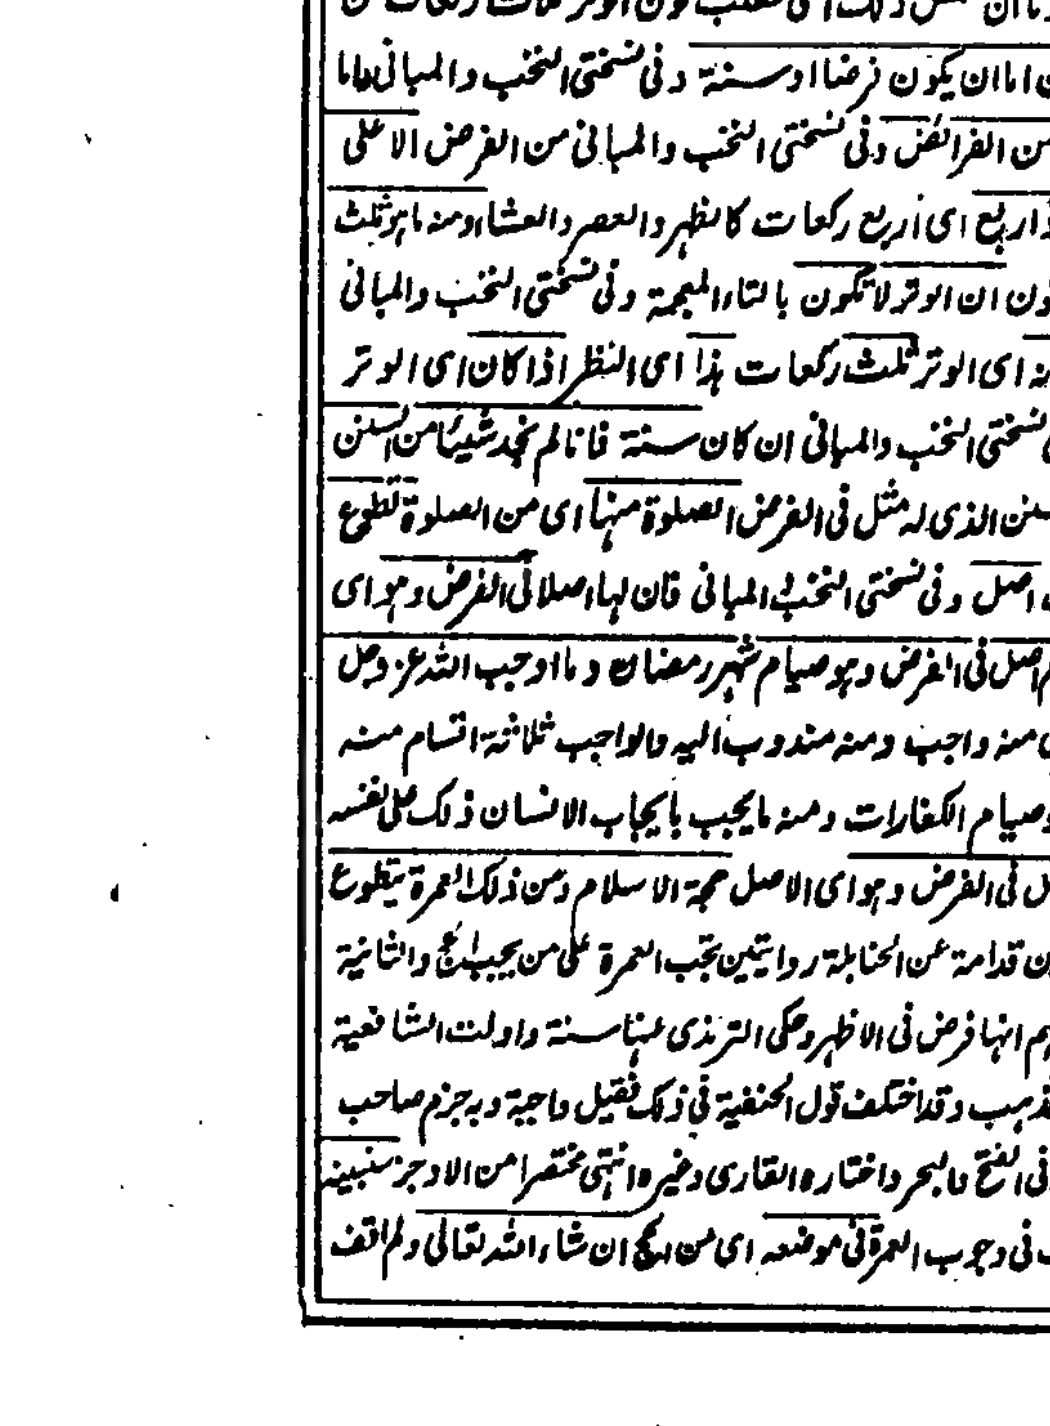 ن اما ان يكون فرضا او سنة وفى نسختى النخب والمبانى فاما
من الفرائض وفى نسختى النخب والمبانى من الفرض الا على
اربع اى اربع ركعات كالظهر والعصر والعشاء ومنه ما هو ثلث
ون ان الوتر لا يكون بالتاء المعجمة وفى نسختى النخب والمبانى
نه اى الوتر ثلث ركعات هذا اى النظر اذا كان اى الوتر
نسختى النخب والمبانى ان كان سنة فانا لم نجد شيئا من السنن
سنن الذى له مثل فى الفرض الصلوة منها اى من الصلوة تطوع
اصل وفى نسختى النخب والمبانى فان لها اصلا فى الفرض وهو اى
اصل فى الفرض وهو صيام شهر رمضان وما اوجب الله عز وجل
منه واجب ومنه مندوب اليه والواجب ثلاثة اقسام منه
وصيام الكفارات ومنه ما يجب بايجاب الانسان ذلك على نفسه
ل فى الفرض وهو اى الاصل حجة الاسلام ومن ذلك العمرة يتطوع
ن قدامة عن الحنابلة روايتين تجب العمرة على من يجب الحج والثانية
هم انها فرض فى الاظهر وحكى الترمذى عنها سنة واولت الشافعية
ذهب وقد اختلف قول الحنفية فى ذلك فقيل واجبة وبه جزم صاحب
فى الفتح والبحر واختاره القارى وغيره انتهى مختصرا من الاوجز سنبينه
فى وجوب العمرة فى موضعه اى من الحج ان شاء الله تعالى ولم اقف